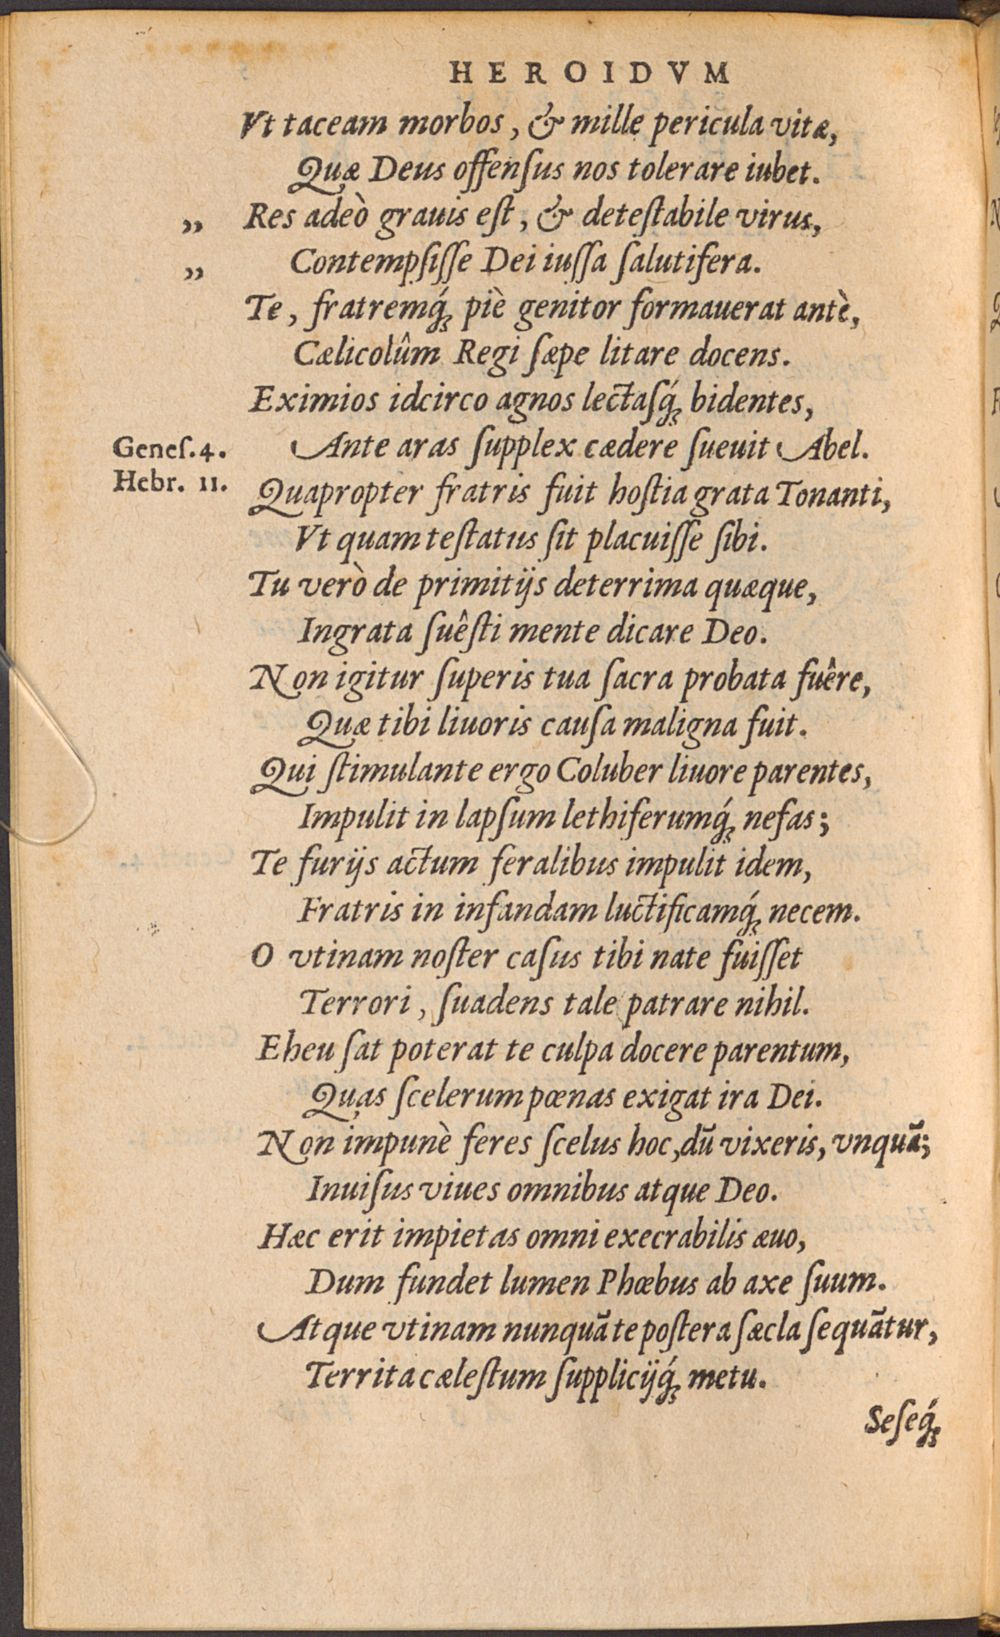 HEROIDVM
Vt taceam morbos, & mille pericula vitæ,
Quæ Deus offenſus nos tolerare iubet.
„ Res adeò grauis eſt, & deteſtabile virus,
„ Contempſiſſe Dei iuſſa ſalutifera.
Te, fratremq́ꝫ piè genitor formauerat antè,
Cælicolûm Regi ſæpe litare docens.
Eximios idcirco agnos lectaſq́ꝫ bidentes,
Geneſ.4. Ante aras ſupplex cædere ſueuit Abel.
Hebr. 11. Quapropter fratris fuit hoſtia grata Tonanti,
Vt quam teſtatus ſit placuiſſe ſibi.
Tu verò de primitijs deterrima quæque,
Ingrata ſuêſti mente dicare Deo.
Non igitur ſuperis tua ſacra probata fuêre,
Quæ tibi liuoris cauſa maligna fuit.
Qui ſtimulante ergo Coluber liuore parentes,
Impulit in lapſum lethiferumq́ꝫ nefas;
Te furijs actum feralibus impulit idem,
Fratris in infandam luctificamq́ꝫ necem.
O vtinam noſter caſus tibi nate fuiſſet
Terrori, ſuadens tale patrare nihil.
Eheu ſat poterat te culpa docere parentum,
Quas ſcelerum pœnas exigat ira Dei.
Non impunè feres ſcelus hoc, dũ vixeris, vnquã;
Inuiſus viues omnibus atque Deo.
Hæc erit impietas omni execrabilis æuo,
Dum fundet lumen Phœbus ab axe ſuum.
Atque vtinam nunquã te poſtera ſæcla ſequãtur,
Territa cæleſtum ſupplicijq́ꝫ metu.
Seſeq́ꝫ